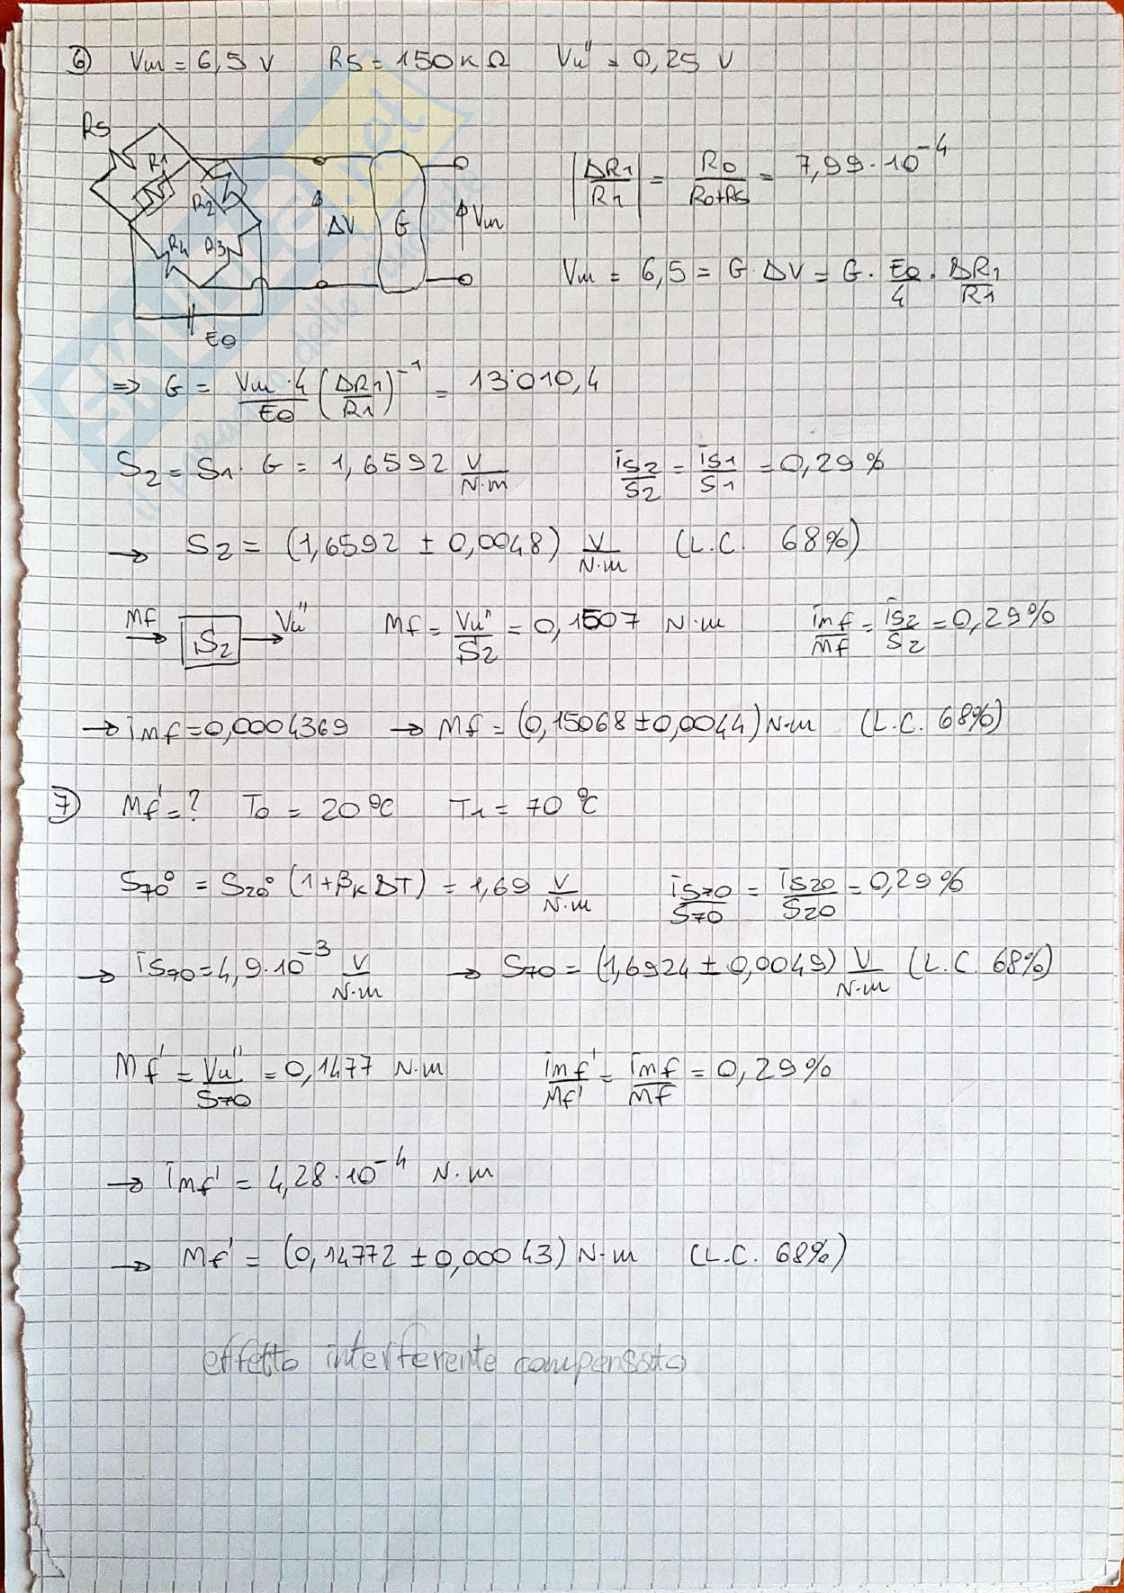 6) Vm = 6,5 V RS = 150 KΩ Vu'' = 0,25 V
RS
R1
R2
R4 R3
ΔV
G
Vm
E0
|ΔR1/R1| = R0/(R0+RS) = 7,99·10^-4
Vm = 6,5 = G·ΔV = G · E0/4 · ΔR1/R1
=> G = Vm·4/E0 (ΔR1/R1)^-1 = 13'010,4
S2 = S1 · G = 1,6592 V/N·m iS2/S2 = iS1/S1 = 0,29 %
→ S2 = (1,6592 ± 0,0048) V/N·m (L.C. 68%)
Mf → S2 → Vu'' Mf = Vu''/S2 = 0,1507 N·m imf/Mf = iS2/S2 = 0,29 %
→ imf = 0,0004369 → Mf = (0,15068 ± 0,0044) N·m (L.C. 68%)
7) Mf' = ? T0 = 20 °C T1 = 70 °C
S70° = S20° (1+βK ΔT) = 1,69 V/N·m iS70/S70 = iS20/S20 = 0,29 %
→ iS70 = 4,9·10^-3 V/N·m → S70 = (1,6924 ± 0,0049) V/N·m (L.C. 68%)
Mf' = Vu''/S70 = 0,1477 N·m imf'/Mf' = imf/Mf = 0,29 %
→ imf' = 4,28·10^-4 N·m
→ Mf' = (0,14772 ± 0,00043) N·m (L.C. 68%)
effetto interferente compensato